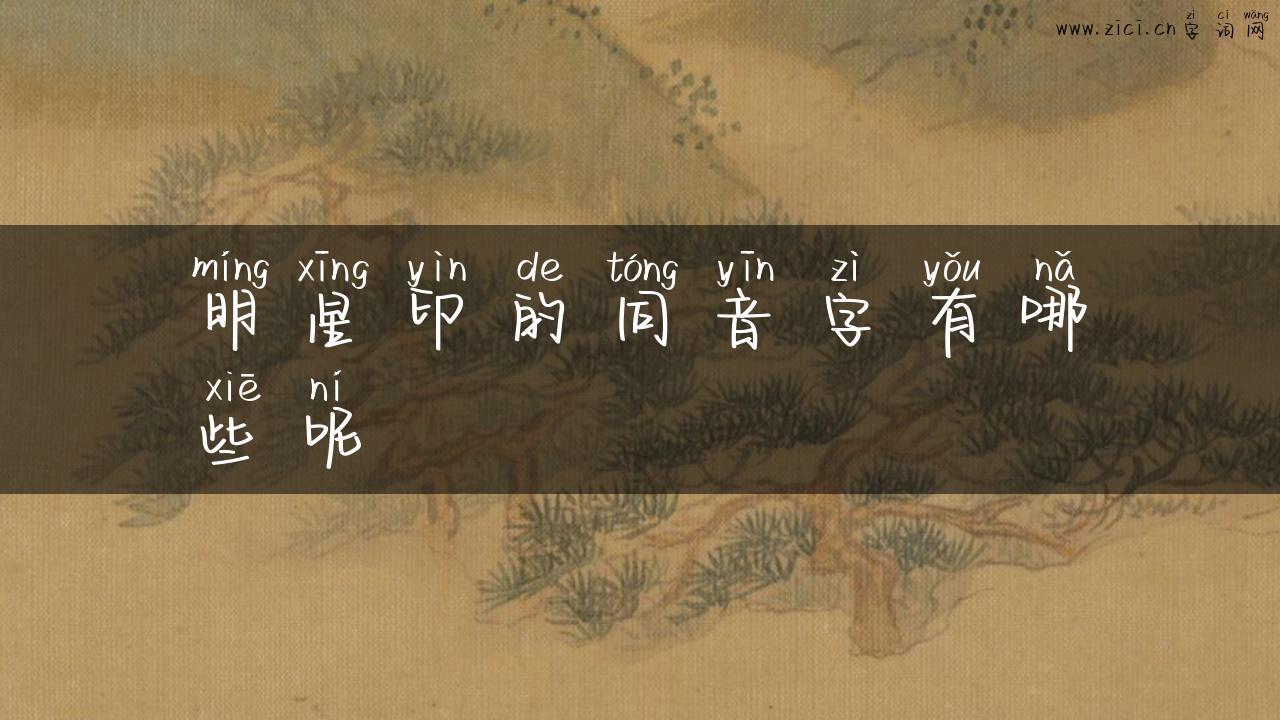 zì cí wǎng
www.zici.cn 字词网
míng xīng yìn de tóng yīn zì yǒu nǎ
明星印的同音字有哪
xiē ní
些呢